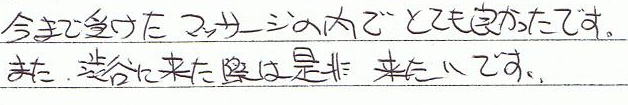 今まで受けた マッサージの内で とても良かったです。
また、渋谷に来た際は是非 来たいです。